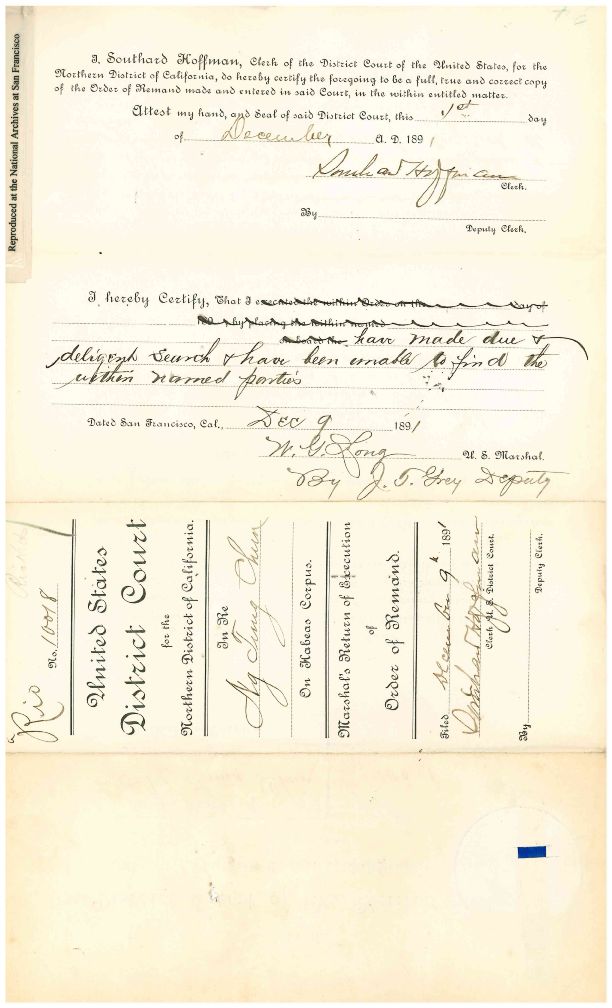 Reproduced at the National Archives at San Francisco
I, Southard Hoffman, Clerk of the District Court of the United States, for the
Northern District of California, do hereby certify the foregoing to be a full, true and correct copy
of the Order of Remand made and entered in said Court, in the within entitled matter.
Attest my hand, and Seal of said District Court, this 1st day
of December A. D. 1891
Southard Hoffman
Clerk.
By
Deputy Clerk.
I hereby Certify, That I executed the within Order on the day of
189 , by placing the within named
on board the have made due &
deligent search & have been unable to find the
within named parties
Dated San Francisco, Cal., Dec 9 1891
W. G. Long U. S. Marshal.
By J. T. Grey Deputy
Rio
No. 10018
United States
District Court
for the
Northern District of California.
In Re
Ng Tung Chun
On Habeas Corpus.
Marshal's Return of Execution
of
Order of Remand.
Filed December 9th 1891
Southard Hoffman
Clerk U. S. District Court.
By
Deputy Clerk.